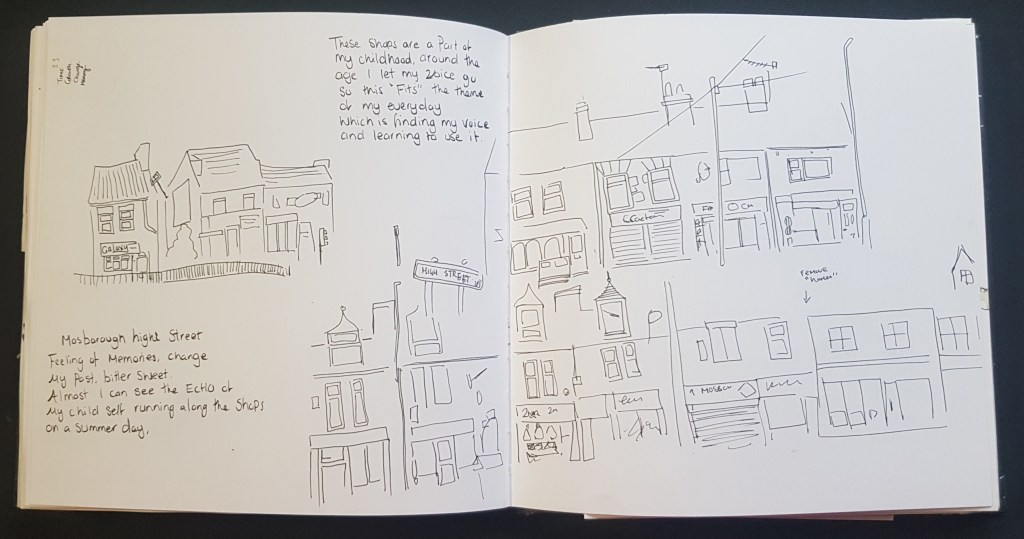 Time
Growth
Change
Memory
These Shops are a Part of
my childhood, around the
age I let my voice go
so this "Fits" the theme
of my everyday
Which is finding my voice
and learning to use it.
GALAXY
Mosborough hight Street
Feeling of Memories, change
My Past. bitter Sweet.
Almost I can see the ECHO of
My child self running along the Shops
on a Summer day,
HIGH STREET
remove